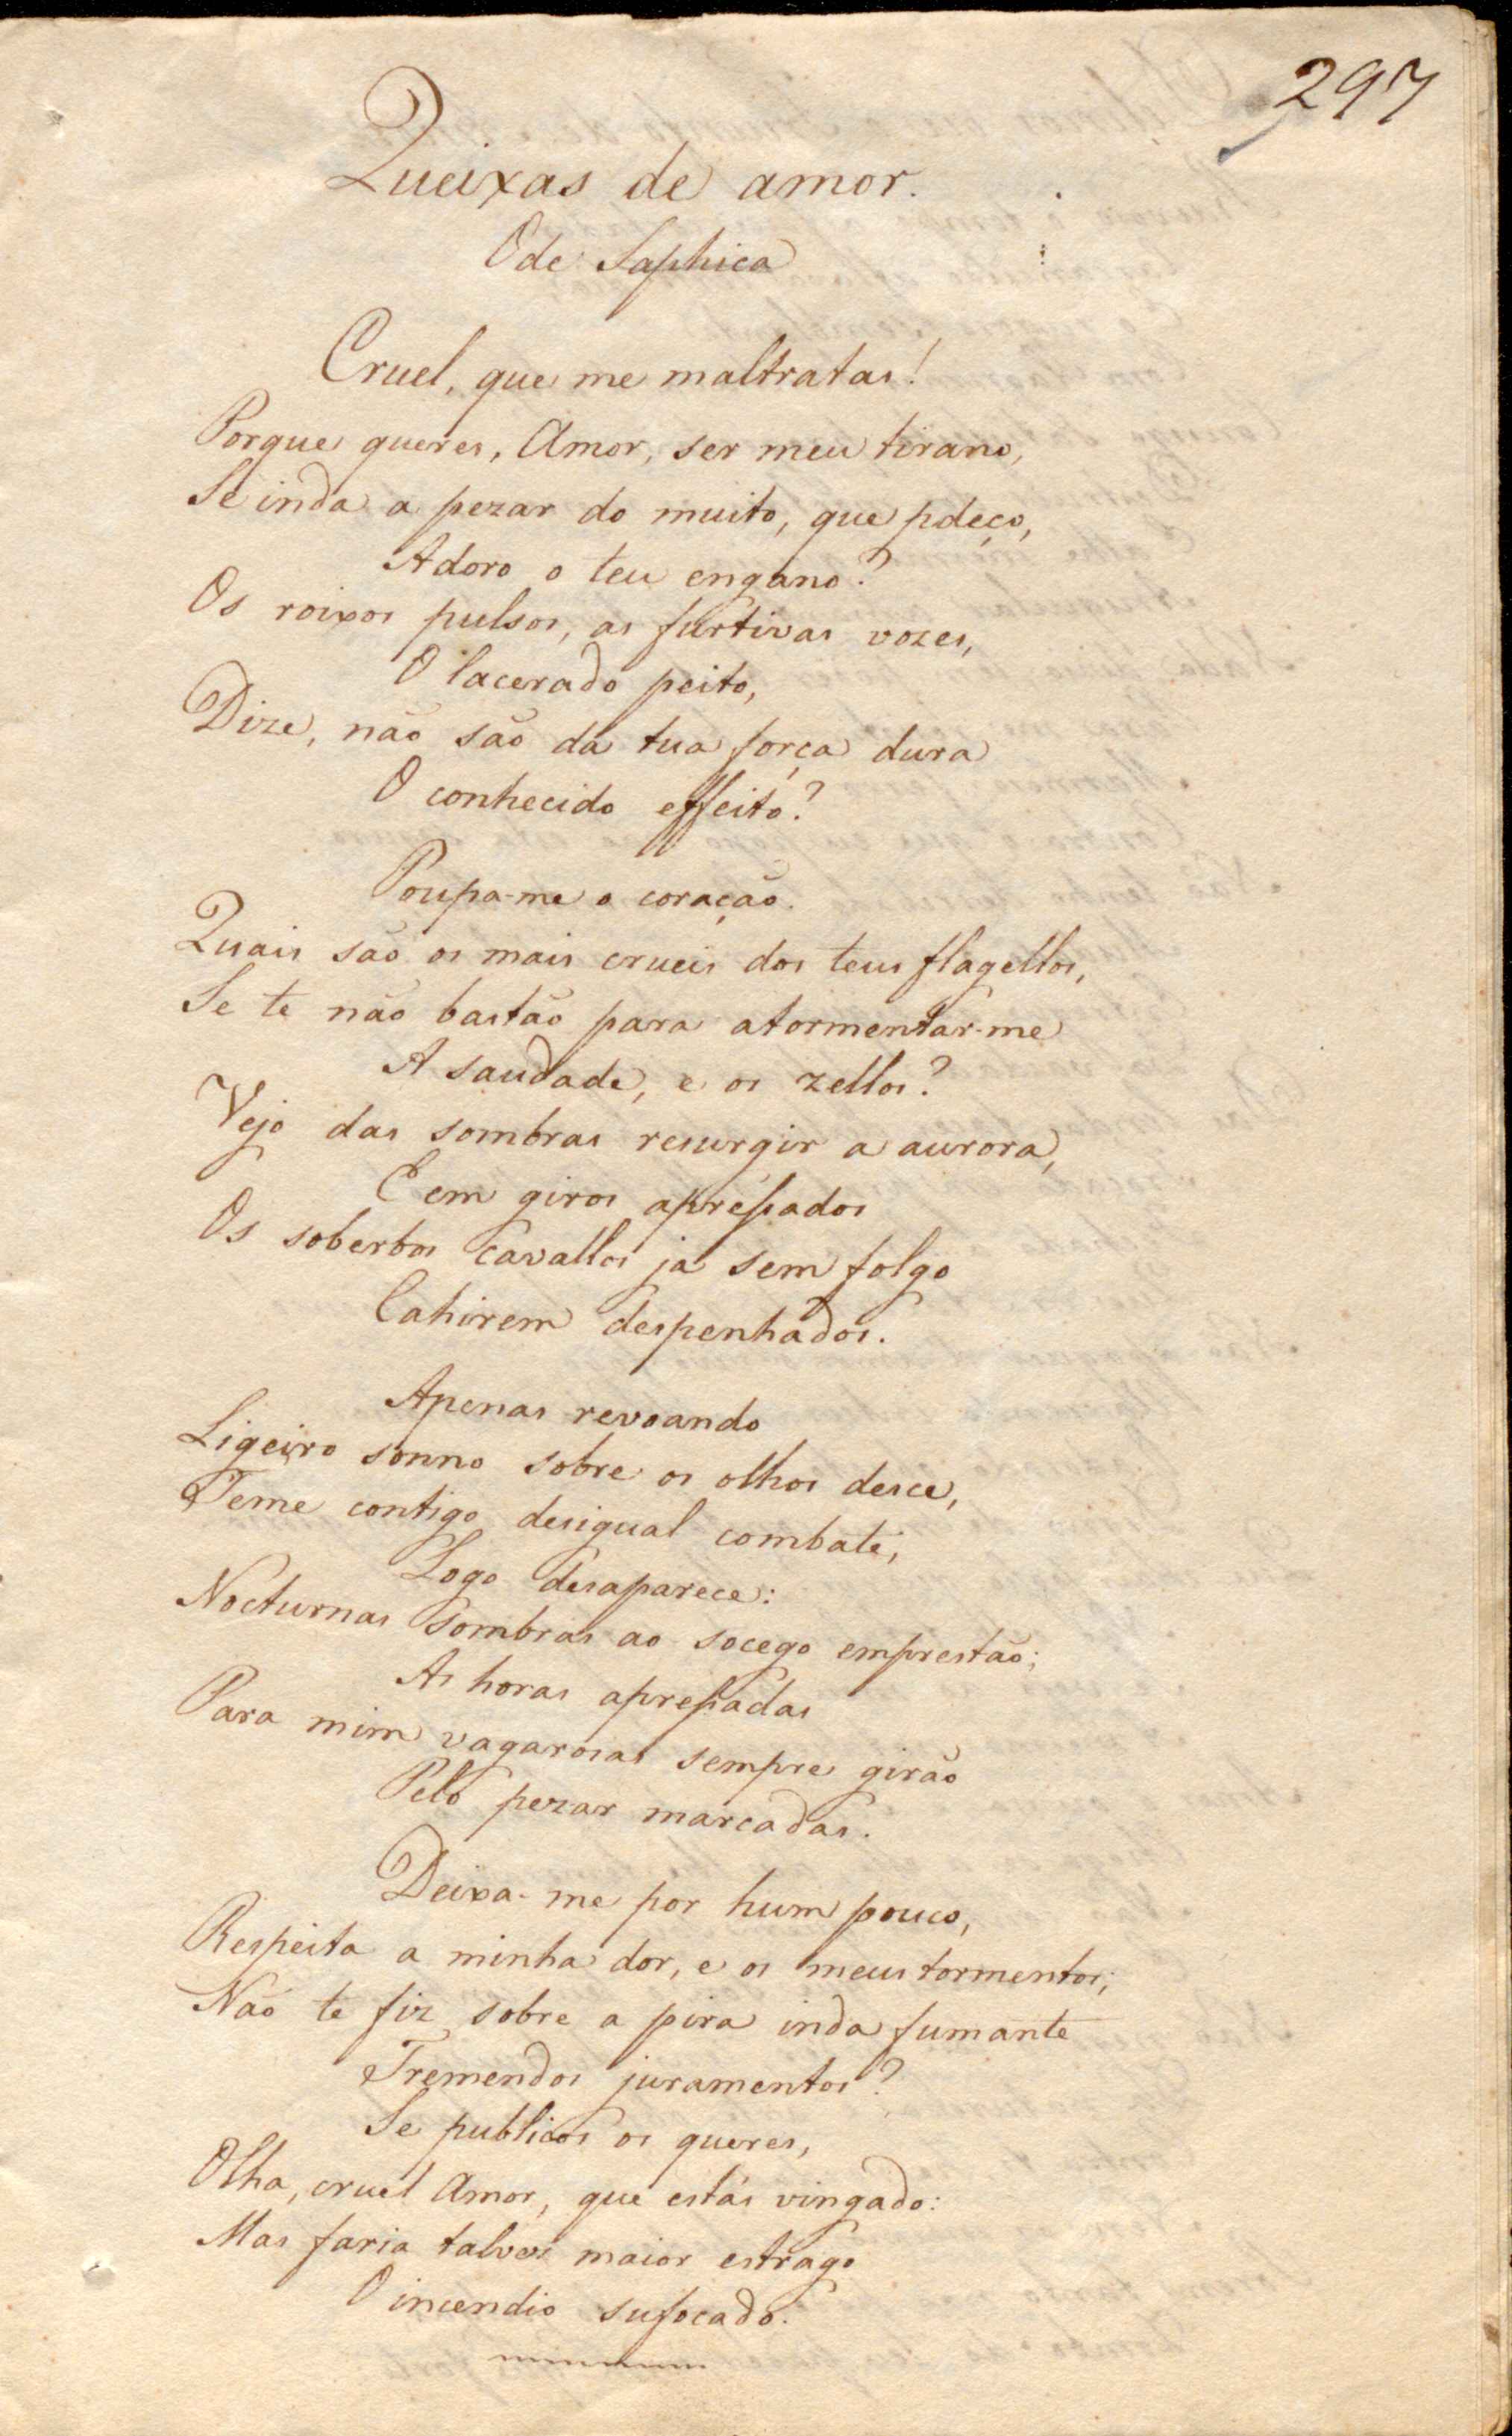 297
Queixas de amor.
Ode Saphica
Cruel, que me maltratas!
Porque queres, Amor, ser meu tirano,
Se inda a pezar do muito, que pdeço,
Adoro o teu engano?
Os roixos pulsos, as furtivas vozes,
O lacerado peito,
Dize, não são da tua força dura
O conhecido effeito?
Poupa-me o coração.
Quais são os mais crueis dos teus flagellos,
Se te não bastão para atormentar-me
A saudade, e os zellos?
Vejo das sombras resurgir a aurora,
E em giros apressados
Os soberbos cavallos ja sem folgo
Cahirem despenhados.
Apenas revoando
Ligeiro sonno sobre os olhos desce,
Teme contigo desigual combate,
Logo desaparece:
Nocturnas sombras ao socego emprestão;
As horas apressadas
Para mim vagarosas sempre girão
Pelo pezar marcadas.
Deixa-me por hum pouco,
Respeita a minha dor, e os meus tormentos;
Não te fiz sobre a pira inda fumante
Tremendos juramentos?
Se publicos os queres,
Olha, cruel Amor, que estás vingado:
Mas faria talves maior estrago
O incendio sufocado.